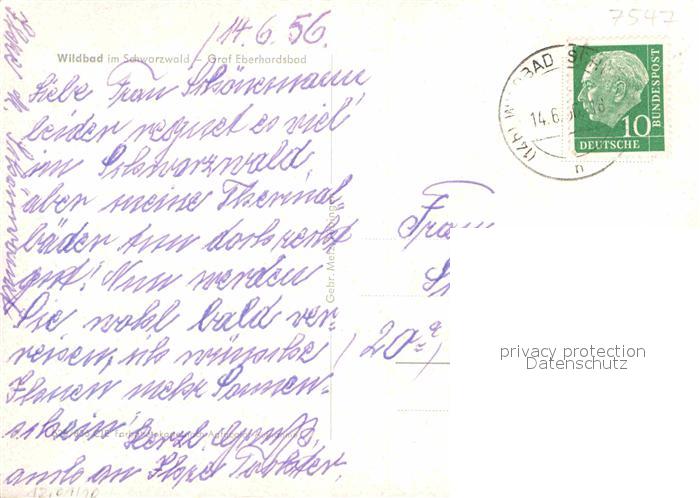 7547
14.6.56.
Wildbad im Schwarzwald – Graf Eberhardsbad
Liebe Frau Schönemann,
leider regnet es viel
im Schwarzwald,
aber meine Thermal-
bäder tun doch recht
gut! Nun werden
Sie wohl bald ver-
reisen, ich wünsche
Ihnen mehr Sonnen-
schein!
Herzl. Grüße,
auch an Ihre Tochter,
Ihre
Gebr. Metz
WILDBAD
14.6.56
10
DEUTSCHE
BUNDESPOST
Frau
(20a)
privacy protection
Datenschutz